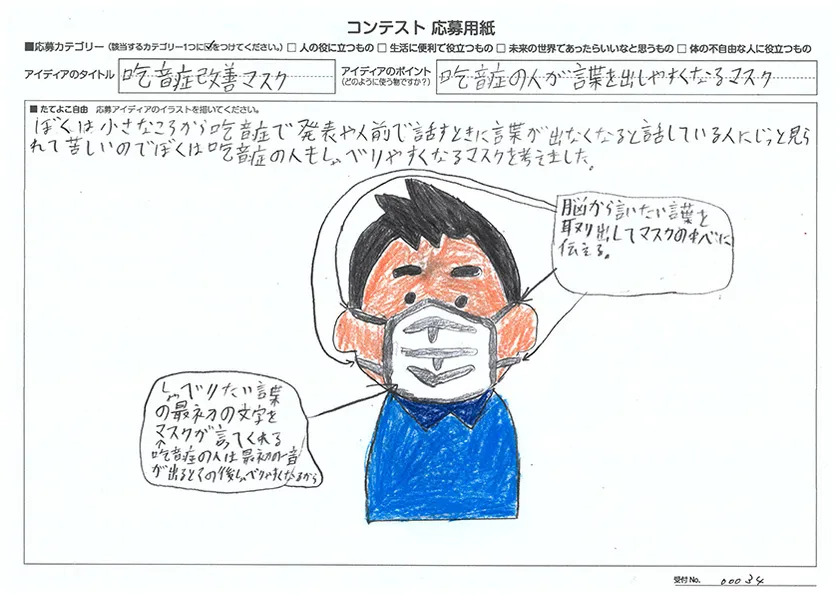 コンテスト 応募用紙
■応募カテゴリー（該当するカテゴリー1つに☑をつけてください。） □ 人の役に立つもの □ 生活に便利で役立つもの □ 未来の世界であったらいいなと思うもの □ 体の不自由な人に役立つもの
アイディアのタイトル 吃音症改善マスク
アイディアのポイント
（どのように使う物ですか？）
吃音症の人が言葉を出しやすくなるマスク
■ たてよこ自由 応募アイディアのイラストを描いてください。
ぼくは小さなころから吃音症で発表や人前で話すときに言葉が出なくなると話している人にじっと見ら
れて苦しいのでぼくは吃音症の人もしゃべりやすくなるマスクを考えました。
脳から言いたい言葉を
取り出してマスクの中へに
伝える。
しゃべりたい言葉
の最初の文字を
マスクが言ってくれる
↑
吃音症の人は最初の音
が出るとその後しゃべりやすくなるから
受付No. 00034